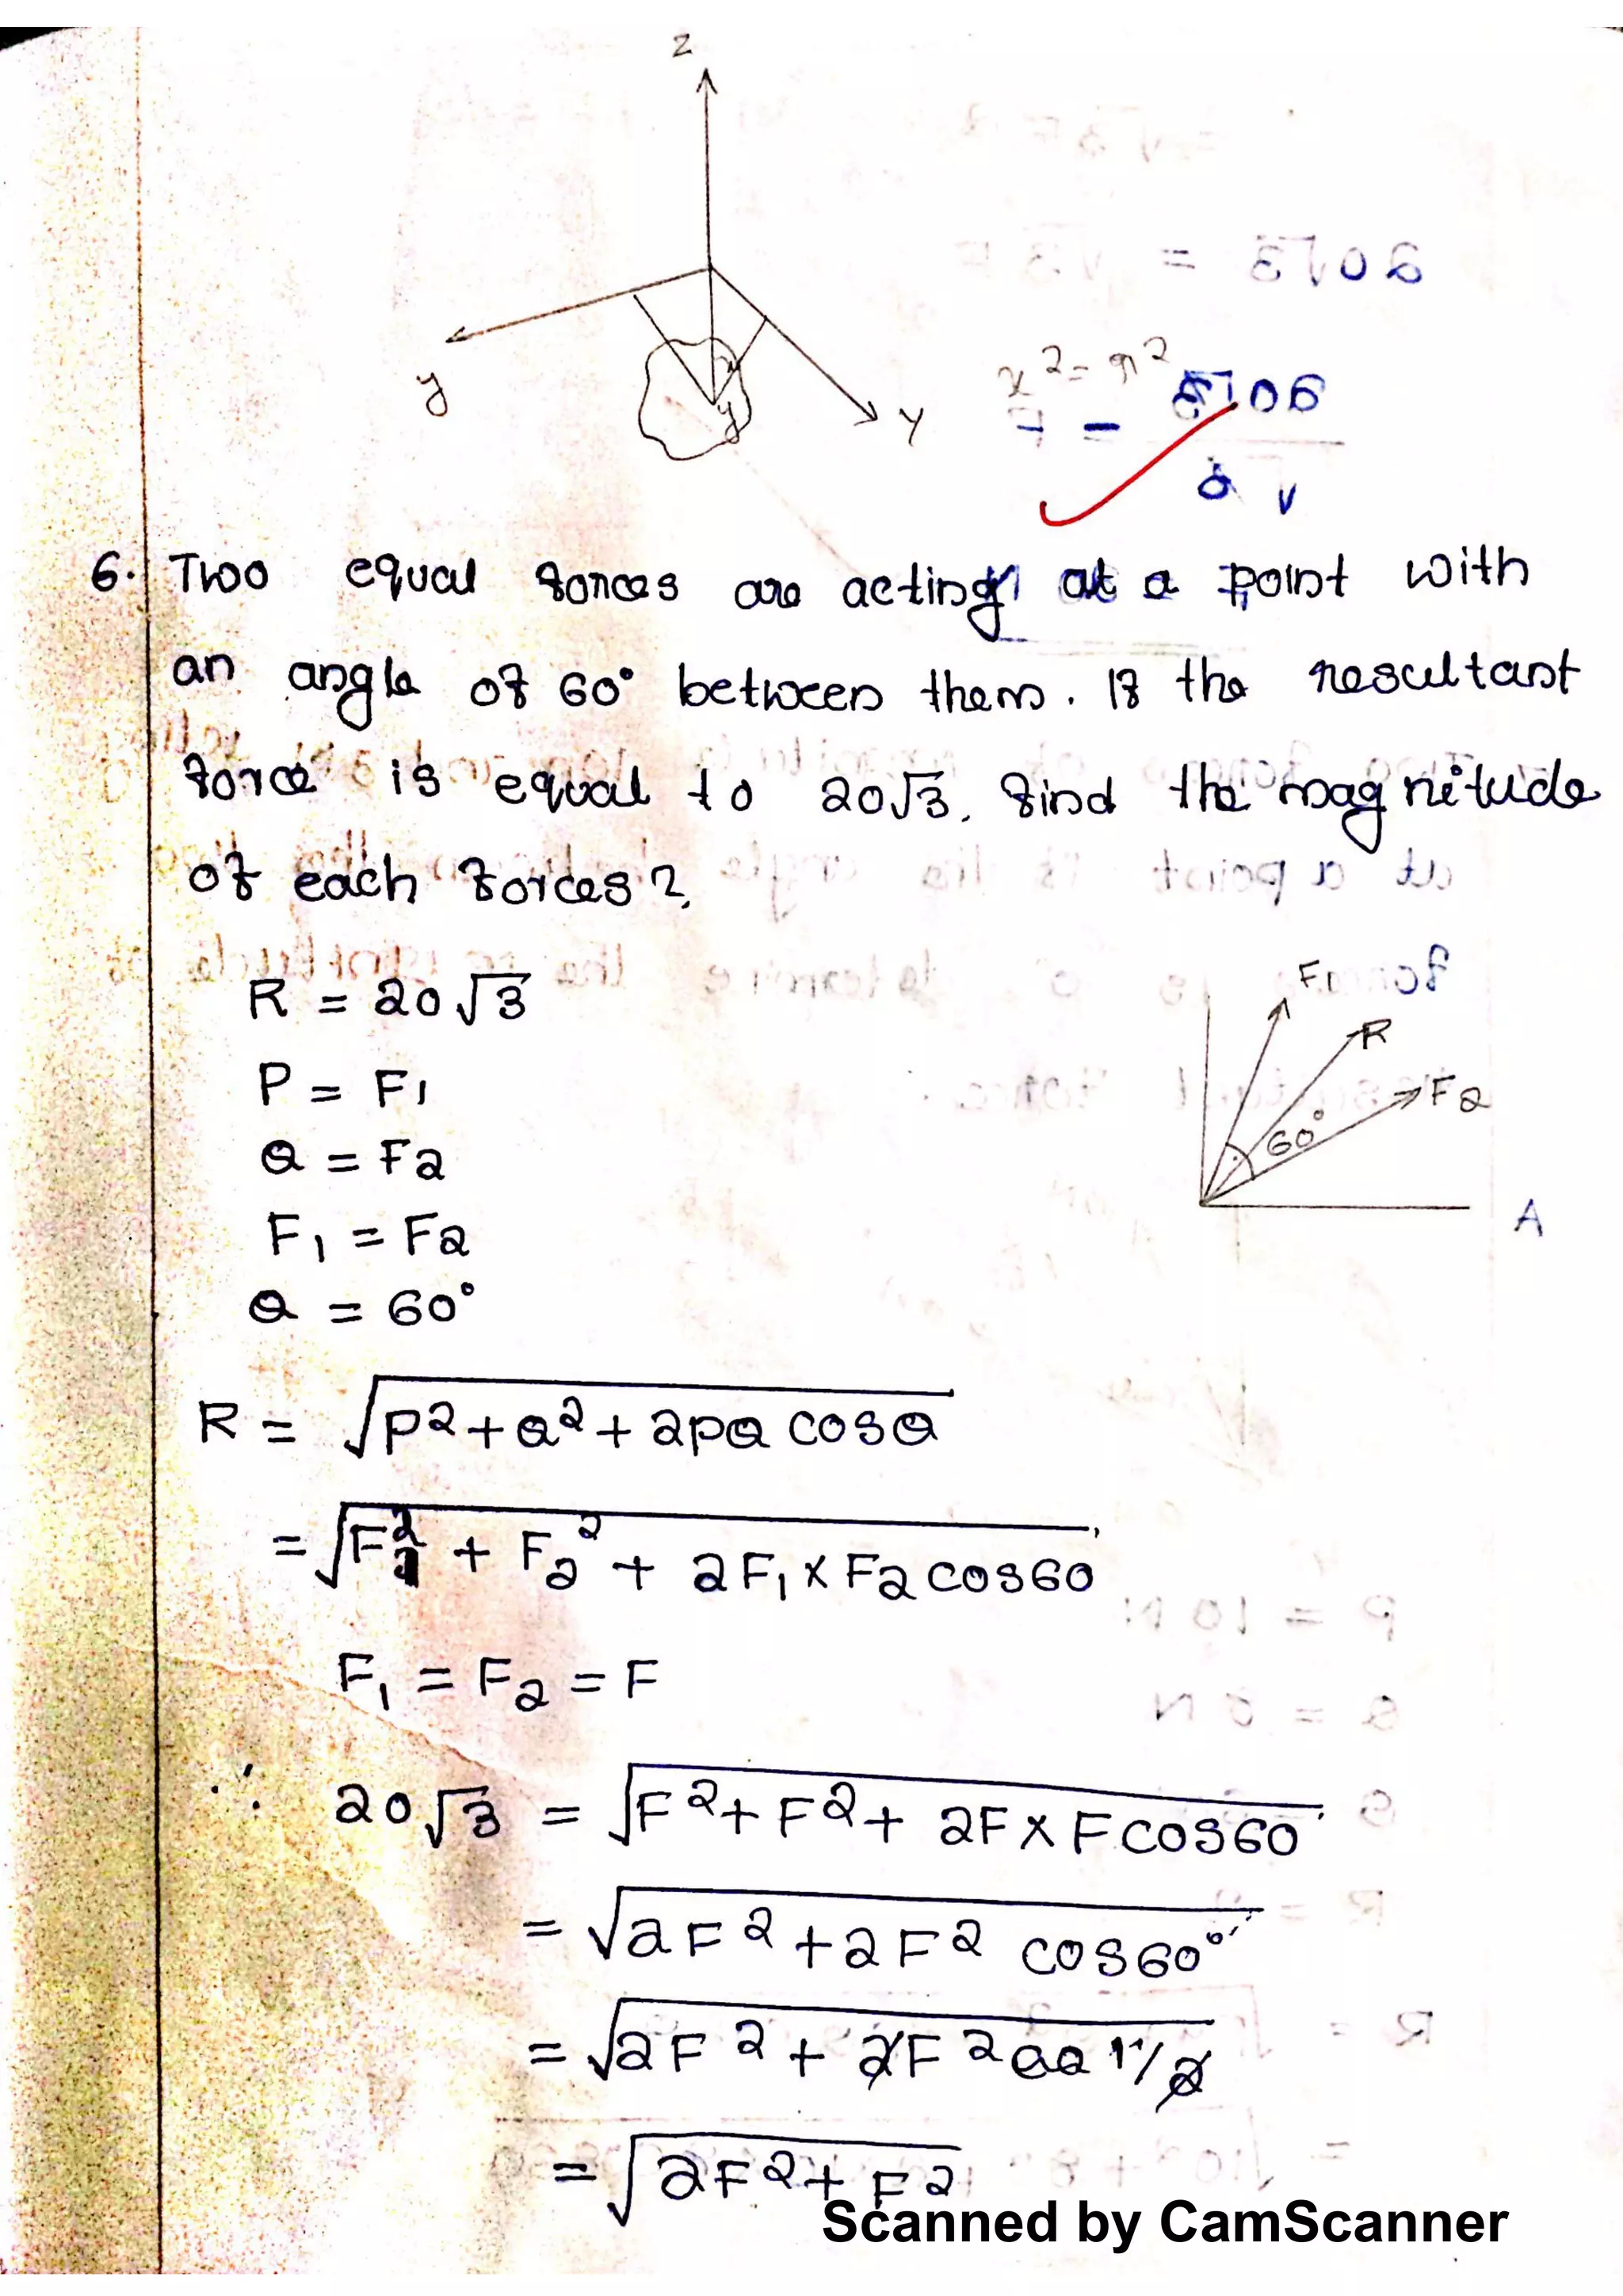 z
y
y
y
x² = r²
6. Two equal forces are acting at a point with
an angle of 60° between them. If the resultant
force is equal to 20√3, find the magnitude
of each forces?
R = 20√3
P = F1
Q = F2
F1 = F2
θ = 60°
F1
R
F2
60°
A
R = √P²+Q²+2PQ cosθ
= √F1² + F2² + 2F1 x F2 cos60
F1 = F2 = F
∴ 20√3 = √F²+F²+ 2F x F cos60
= √2F²+2F² cos60°
= √2F² + 2F² 1/2
= √2F²+ F²
Scanned by CamScanner